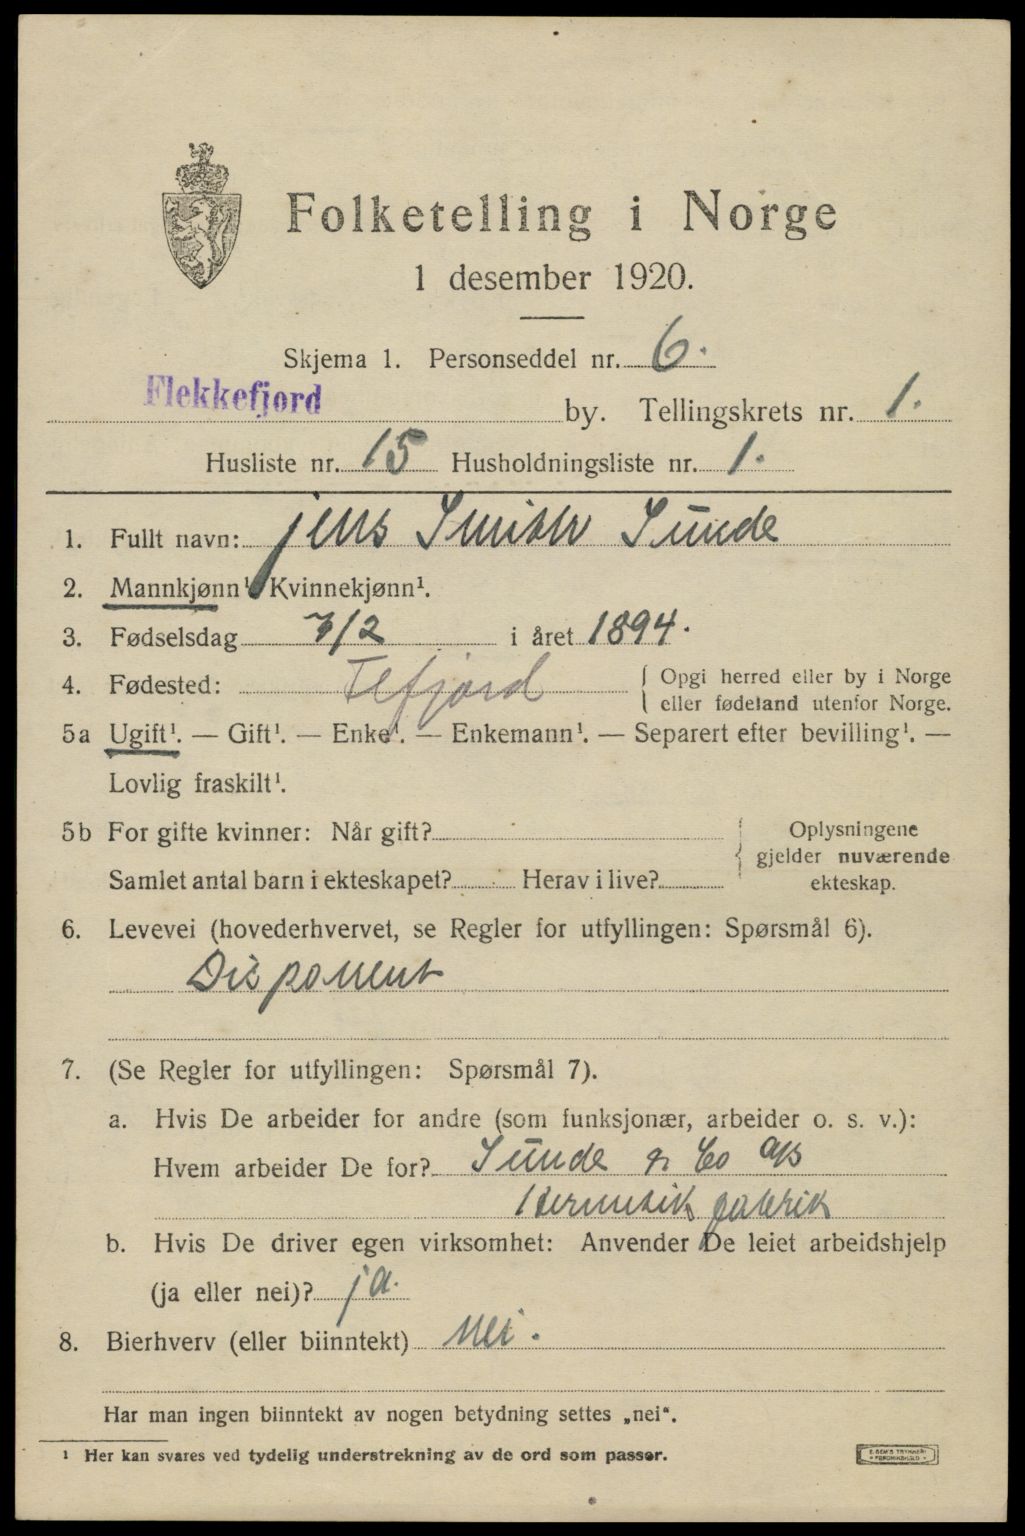 Folketelling i Norge
1 desember 1920.
Skjema 1. Personseddel nr. 6.
Flekkefjord by. Tellingskrets nr. 1.
Husliste nr. 15 Husholdningsliste nr. 1.
1. Fullt navn: Jens Smith Sunde
2. Mannkjønn¹ Kvinnekjønn¹.
3. Fødselsdag 7/2 i året 1894.
4. Fødested: Flefjord { Opgi herred eller by i Norge
eller fødeland utenfor Norge.
5a Ugift¹. — Gift¹. — Enke¹. — Enkemann¹. — Separert efter bevilling¹. —
Lovlig fraskilt¹.
5b For gifte kvinner: Når gift? { Oplysningene
gjelder nuværende
Samlet antal barn i ekteskapet? Herav i live? ekteskap.
6. Levevei (hovederhvervet, se Regler for utfyllingen: Spørsmål 6).
Disponent
7. (Se Regler for utfyllingen: Spørsmål 7).
a. Hvis De arbeider for andre (som funksjonær, arbeider o. s. v.):
Hvem arbeider De for? Sunde & Co A/S
Hermetikfabrik
b. Hvis De driver egen virksomhet: Anvender De leiet arbeidshjelp
(ja eller nei)? ja.
8. Bierhverv (eller biinntekt) Nei.
Har man ingen biinntekt av nogen betydning settes „nei“.
¹ Her kan svares ved tydelig understrekning av de ord som passer.